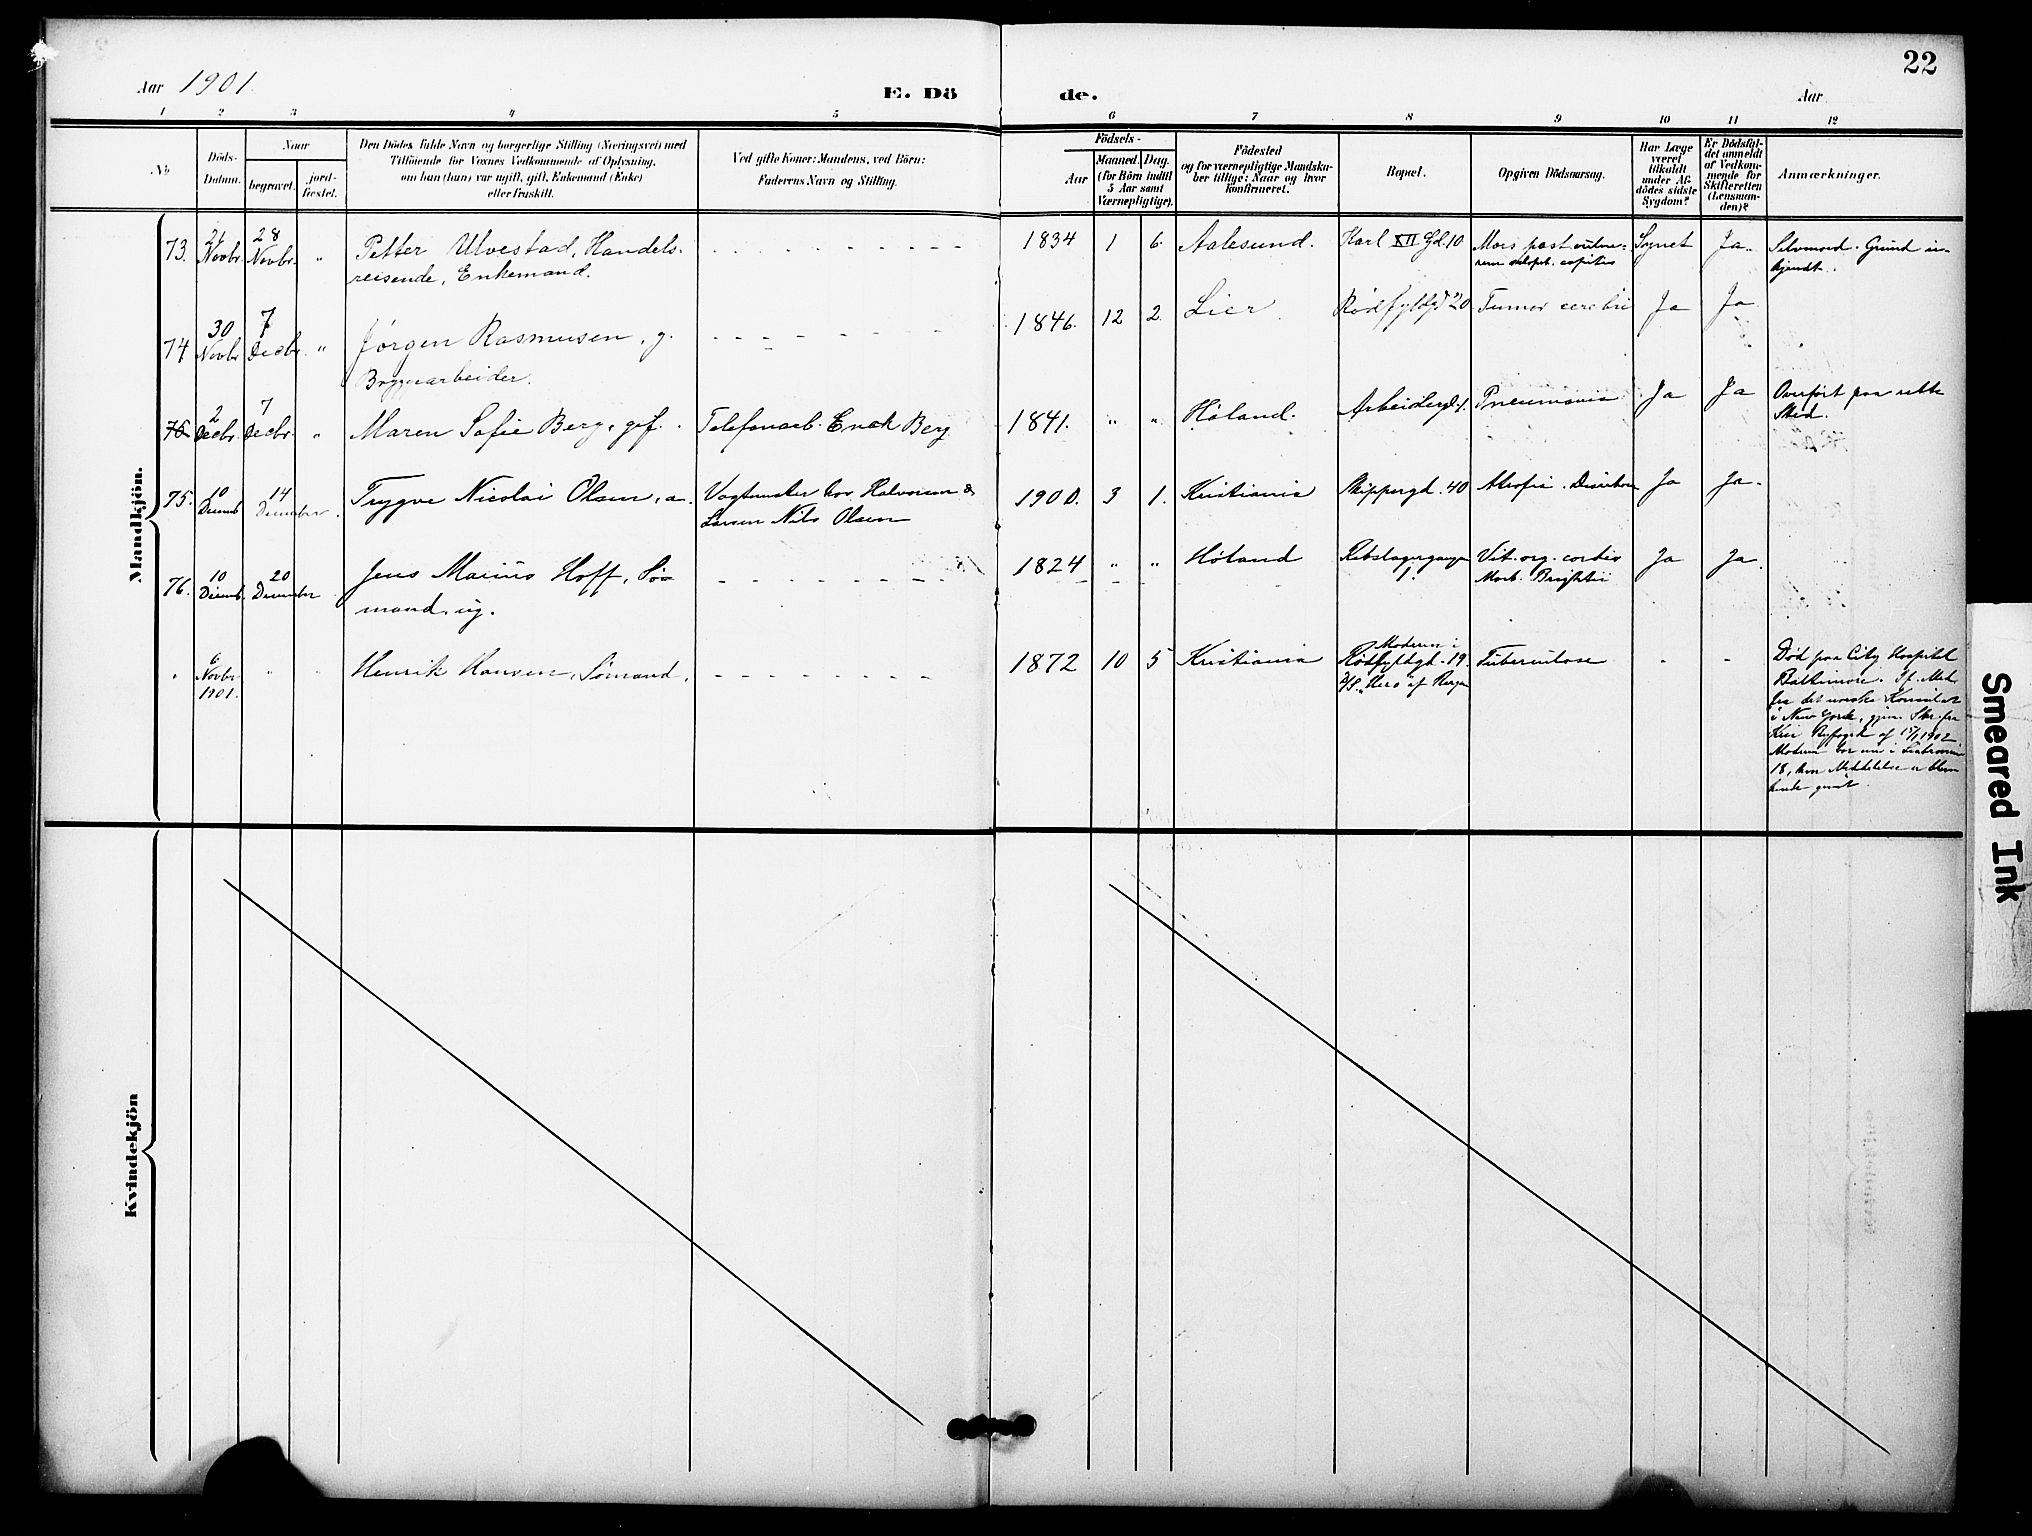 22
Aar 1901. E. Dö de. Aar
1 2 3 4 5 6 7 8 9 10 11 12
No
Döds-
Datum.
Naar
begravet.
jord-
fæstet.
Den Dödes fulde Navn og borgerlige Stilling (Næringsvei) med
Tilföiende for Voxnes Vedkommende af Oplysning,
om han (hun) var ugift, gift, Enkemand (Enke)
eller fraskilt.
Ved gifte Koner: Mandens, ved Börn:
Faderens Navn og Stilling.
Födsels-
Aar
Maaned. Dag.
(for Börn indtil
5 Aar samt
Værnepligtige).
Födested
og for værnepligtige Mandska-
ber tillige: Naar og hvor
konfirmeret.
Bopæl.
Opgiven Dödsaarsag.
Har Læge
været
tilkaldt
under Af-
dödes sidste
Sygdom?
Er Dödsfal-
det anmeldt
af Vedkom-
mende for
Skifteretten
(Lensman-
den)?
Anmærkninger.
Mandkjön.
73. Novbr. 28 Novbr. " Petter Ulvestad, Handels-
reisende, Enkemand.
1834 1 6 Aalesund. Karl XII Gd. 10 Mors post
capitis
Ja. Selvmord. Grund
74 30 Novbr 7 Decbr. " Jørgen Rasmusen, g.
Bryggearbeider.
1846. 12 2 Lier Rødfyldgd 20 Tumor cerebri Ja Ja
76 2 Decbr. 7 Decbr. " Maren Sofie Berg, gif. Telefonarb. Enok Berg
1841. " " Høland. Arbeidergd. 1. Pneumonia Ja Ja Overført paa rette
Sted.
75. 10 Decemb 14 December. Trygve Nicolai Olsen, a. Vagtmester hos Halvorsen &
Larsen Nils Olsen
1900. 3 1. Kristiania Skippergd. 40 Atrofi. Ja Ja.
76. 10 Decemb. 20 December Jens Marius Hoff, Sø-
mand, ug.
1824 " " Høland Rebslagergangen
1.
Vit. org. cordis
Morb. Brightii
Ja Ja.
" 6 Novbr 1901. " Henrik Hansen, Sømand,
1872 10 5 Kristiania Moderen i
Rødfyldgd. 19.
D/S. "Hero" af Bergen
Tuberculose - -
Død paa City Hospital
Baltimore. If. Med.
fra det norske Konsulat
i New York, gjen. Skr. fra
Kria Byfogd af 17/1 1902
Moderen bor nu i
18, hvor Meddelelse er bleven
hende givet.
Kvindekjön
Smeared Ink